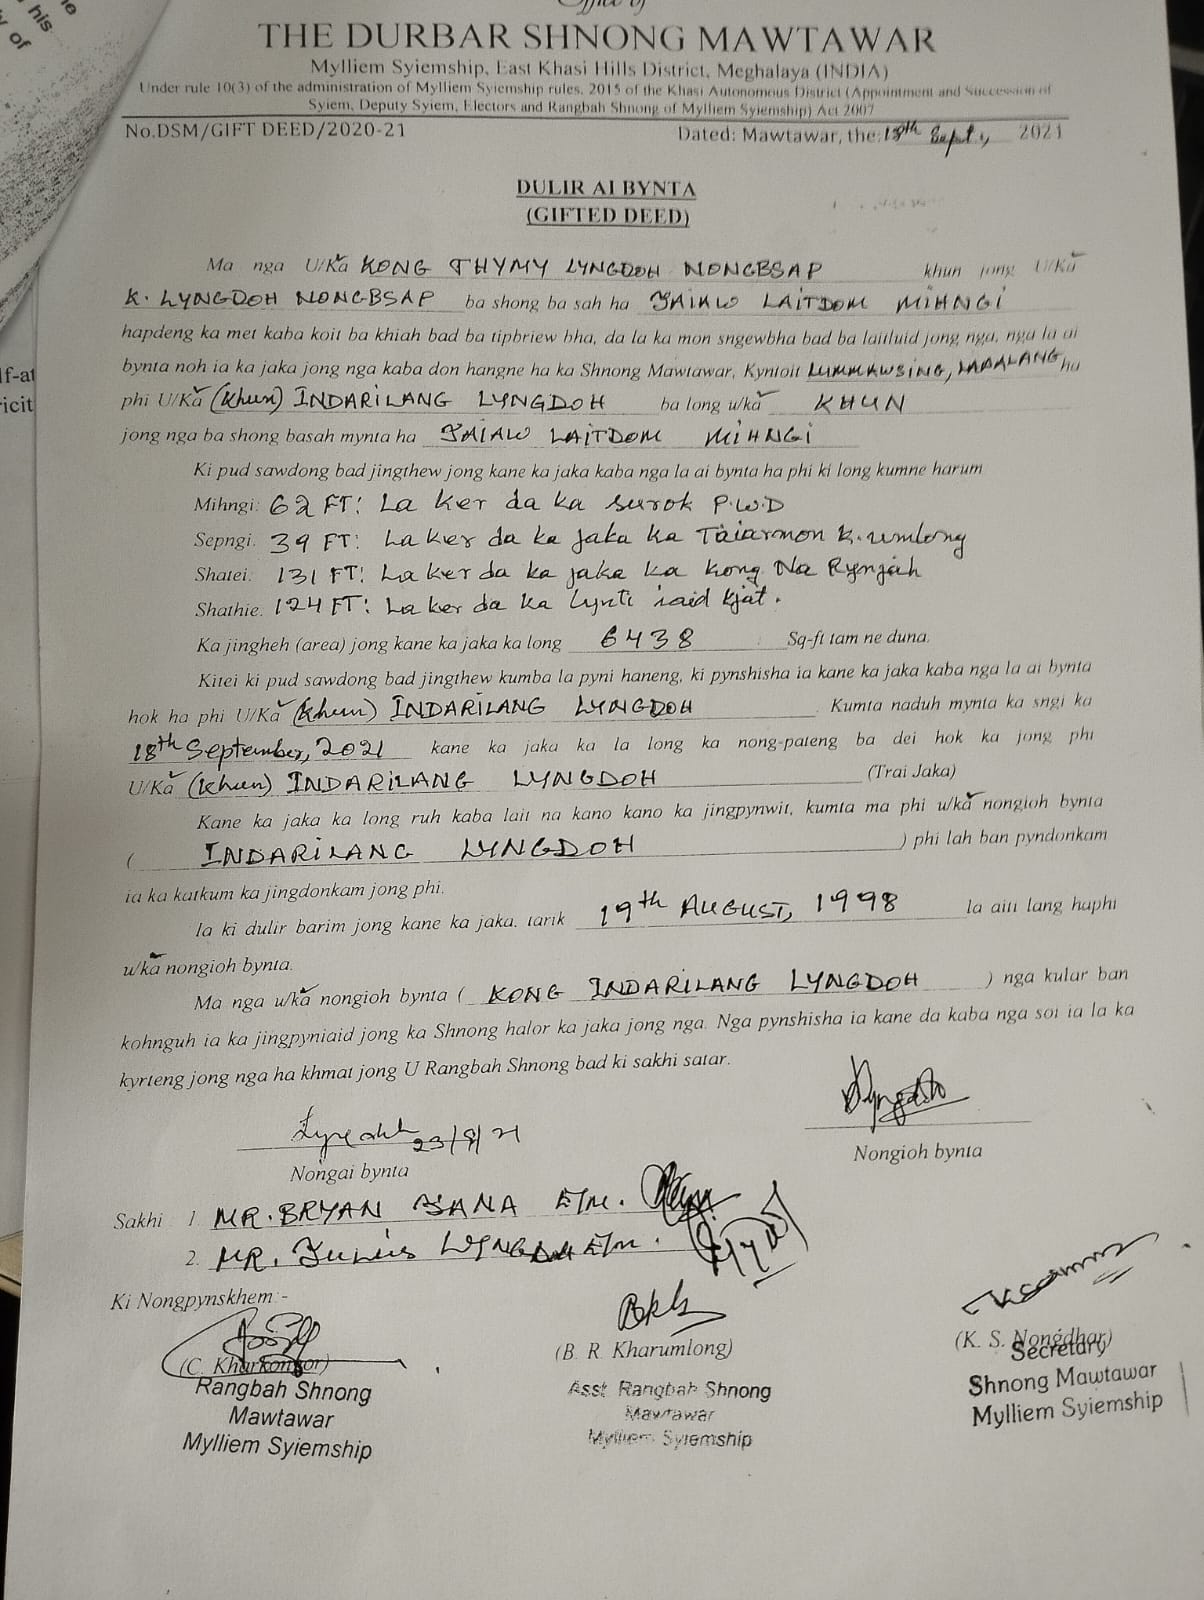 his
of
Office of
THE DURBAR SHNONG MAWTAWAR
Mylliem Syiemship, East Khasi Hills District, Meghalaya (INDIA)
Under rule 10(3) of the administration of Mylliem Syiemship rules, 2015 of the Khasi Autonomous District (Appointment and Succession of
Syiem, Deputy Syiem, Electors and Rangbah Shnong of Mylliem Syiemship) Act 2007
No.DSM/GIFT DEED/2020-21 Dated: Mawtawar, the: 18th Sept, 2021
DULIR AI BYNTA
(GIFTED DEED)
Ma nga U/Kă KONG THYMY LYNGDOH NONGBSAP khun jong U/Kă
K. LYNGDOH NONGBSAP ba shong ba sah ha JAIAW LAITDOM MIHNGI
hapdeng ka met kaba koit ba khiah bad ba tipbriew bha, da la ka mon sngewbha bad ba laitluid jong nga, nga la ai
bynta noh ia ka jaka jong nga kaba don hangne ha ka Shnong Mawtawar, Kyntoit LUMMAWSING, ha
phi U/Kă (khun) INDARILANG LYNGDOH ba long u/kă KHUN
jong nga ba shong basah mynta ha JAIAW LAITDOM MIHNGI
Ki pud sawdong bad jingthew jong kane ka jaka kaba nga la ai bynta ha phi ki long kumne harum
Mihngi: 62 FT: La ker da ka surok P.W.D
Sepngi. 39 FT: La ker da ka jaka ka Taiarmon K. umlong
Shatei: 131 FT: La ker da ka jaka ka kong Na Rynjah
Shathie. 124 FT: La ker da ka lynti iaid kjat.
Ka jingheh (area) jong kane ka jaka ka long 6438 Sq-ft tam ne duna.
Kitei ki pud sawdong bad jingthew kumba la pyni haneng, ki pynshisha ia kane ka jaka kaba nga la ai bynta
hok ha phi U/Kă (khun) INDARILANG LYNGDOH Kumta naduh mynta ka sngi ka
18th September, 2021 kane ka jaka ka la long ka nong-pateng ba dei hok ka jong phi
U/Kă (khun) INDARILANG LYNGDOH (Trai Jaka)
Kane ka jaka ka long ruh kaba lait na kano kano ka jingpynwit, kumta ma phi u/kă nongioh bynta
( INDARILANG LYNGDOH ) phi lah ban pyndonkam
ia ka katkum ka jingdonkam jong phi.
Ia ki dulir barim jong kane ka jaka, tarik 19th AUGUST, 1998 la aiti lang haphi
u/kă nongioh bynta.
Ma nga u/kă nongioh bynta ( KONG INDARILANG LYNGDOH ) nga kular ban
kohnguh ia ka jingpyniaid jong ka Shnong halor ka jaka jong nga. Nga pynshisha ia kane da kaba nga soi ia la ka
kyrteng jong nga ha khmat jong U Rangbah Shnong bad ki sakhi satar.
Nongai bynta Nongioh bynta
Sakhi 1. MR. BRYAN JANA
2. MR. JULIUS LYNGDOH
Ki Nongpynskhem:-
(C. Kharkongor) (B. R. Kharumlong) (K. S. Nongdhar)
Rangbah Shnong Asst. Rangbah Shnong Secretary
Mawtawar Mawtawar Shnong Mawtawar
Mylliem Syiemship Mylliem Syiemship Mylliem Syiemship